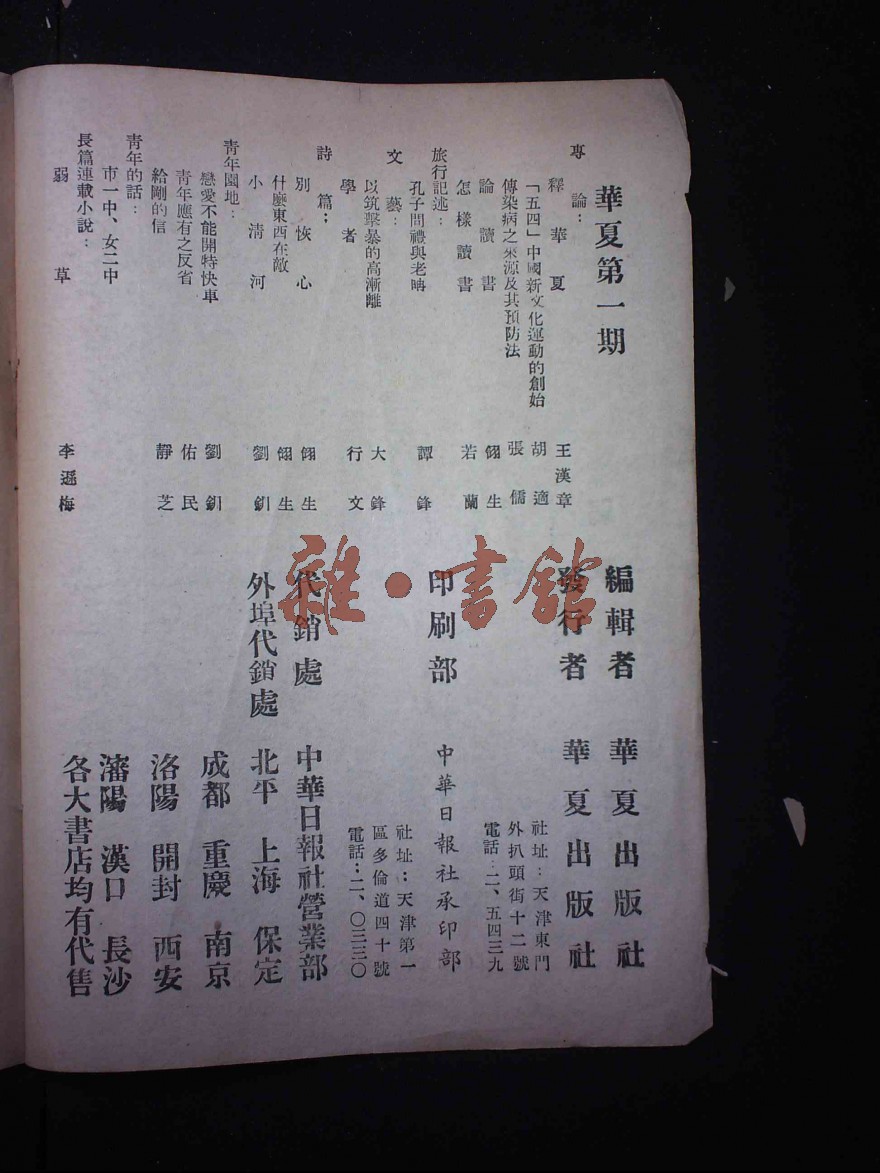 華夏第一期
專論：
釋華夏 王漢章
「五四」中國新文化運動的創始 胡適
傳染病之來源及其預防法 張儒
論讀書 翎生
怎樣讀書 若蘭
旅行記述：
孔子問禮與老聃 譚鋒
文藝：
以筑擊暴的高漸離 大鋒
學者 行文
詩篇：
別恢心 翎生
什麼東西在敵 翎生
小清河 劉釧
青年園地：
戀愛不能開特快車 劉釧
青年應有之反省 佑民
給剛的信 靜芝
青年的話：
市一中、女二中
長篇連載小說：
弱草 李遜梅
編輯者 華夏出版社
發行者 華夏出版社
社址：天津東門
外扒頭街十二號
電話：二、五四三九
印刷部 中華日報社承印部
社址：天津第一
區多倫道四十號
電話：二、〇三三〇
代銷處 中華日報社營業部
外埠代銷處 北平 上海 保定
成都 重慶 南京
洛陽 開封 西安
瀋陽 漢口 長沙
各大書店均有代售
雜·書館